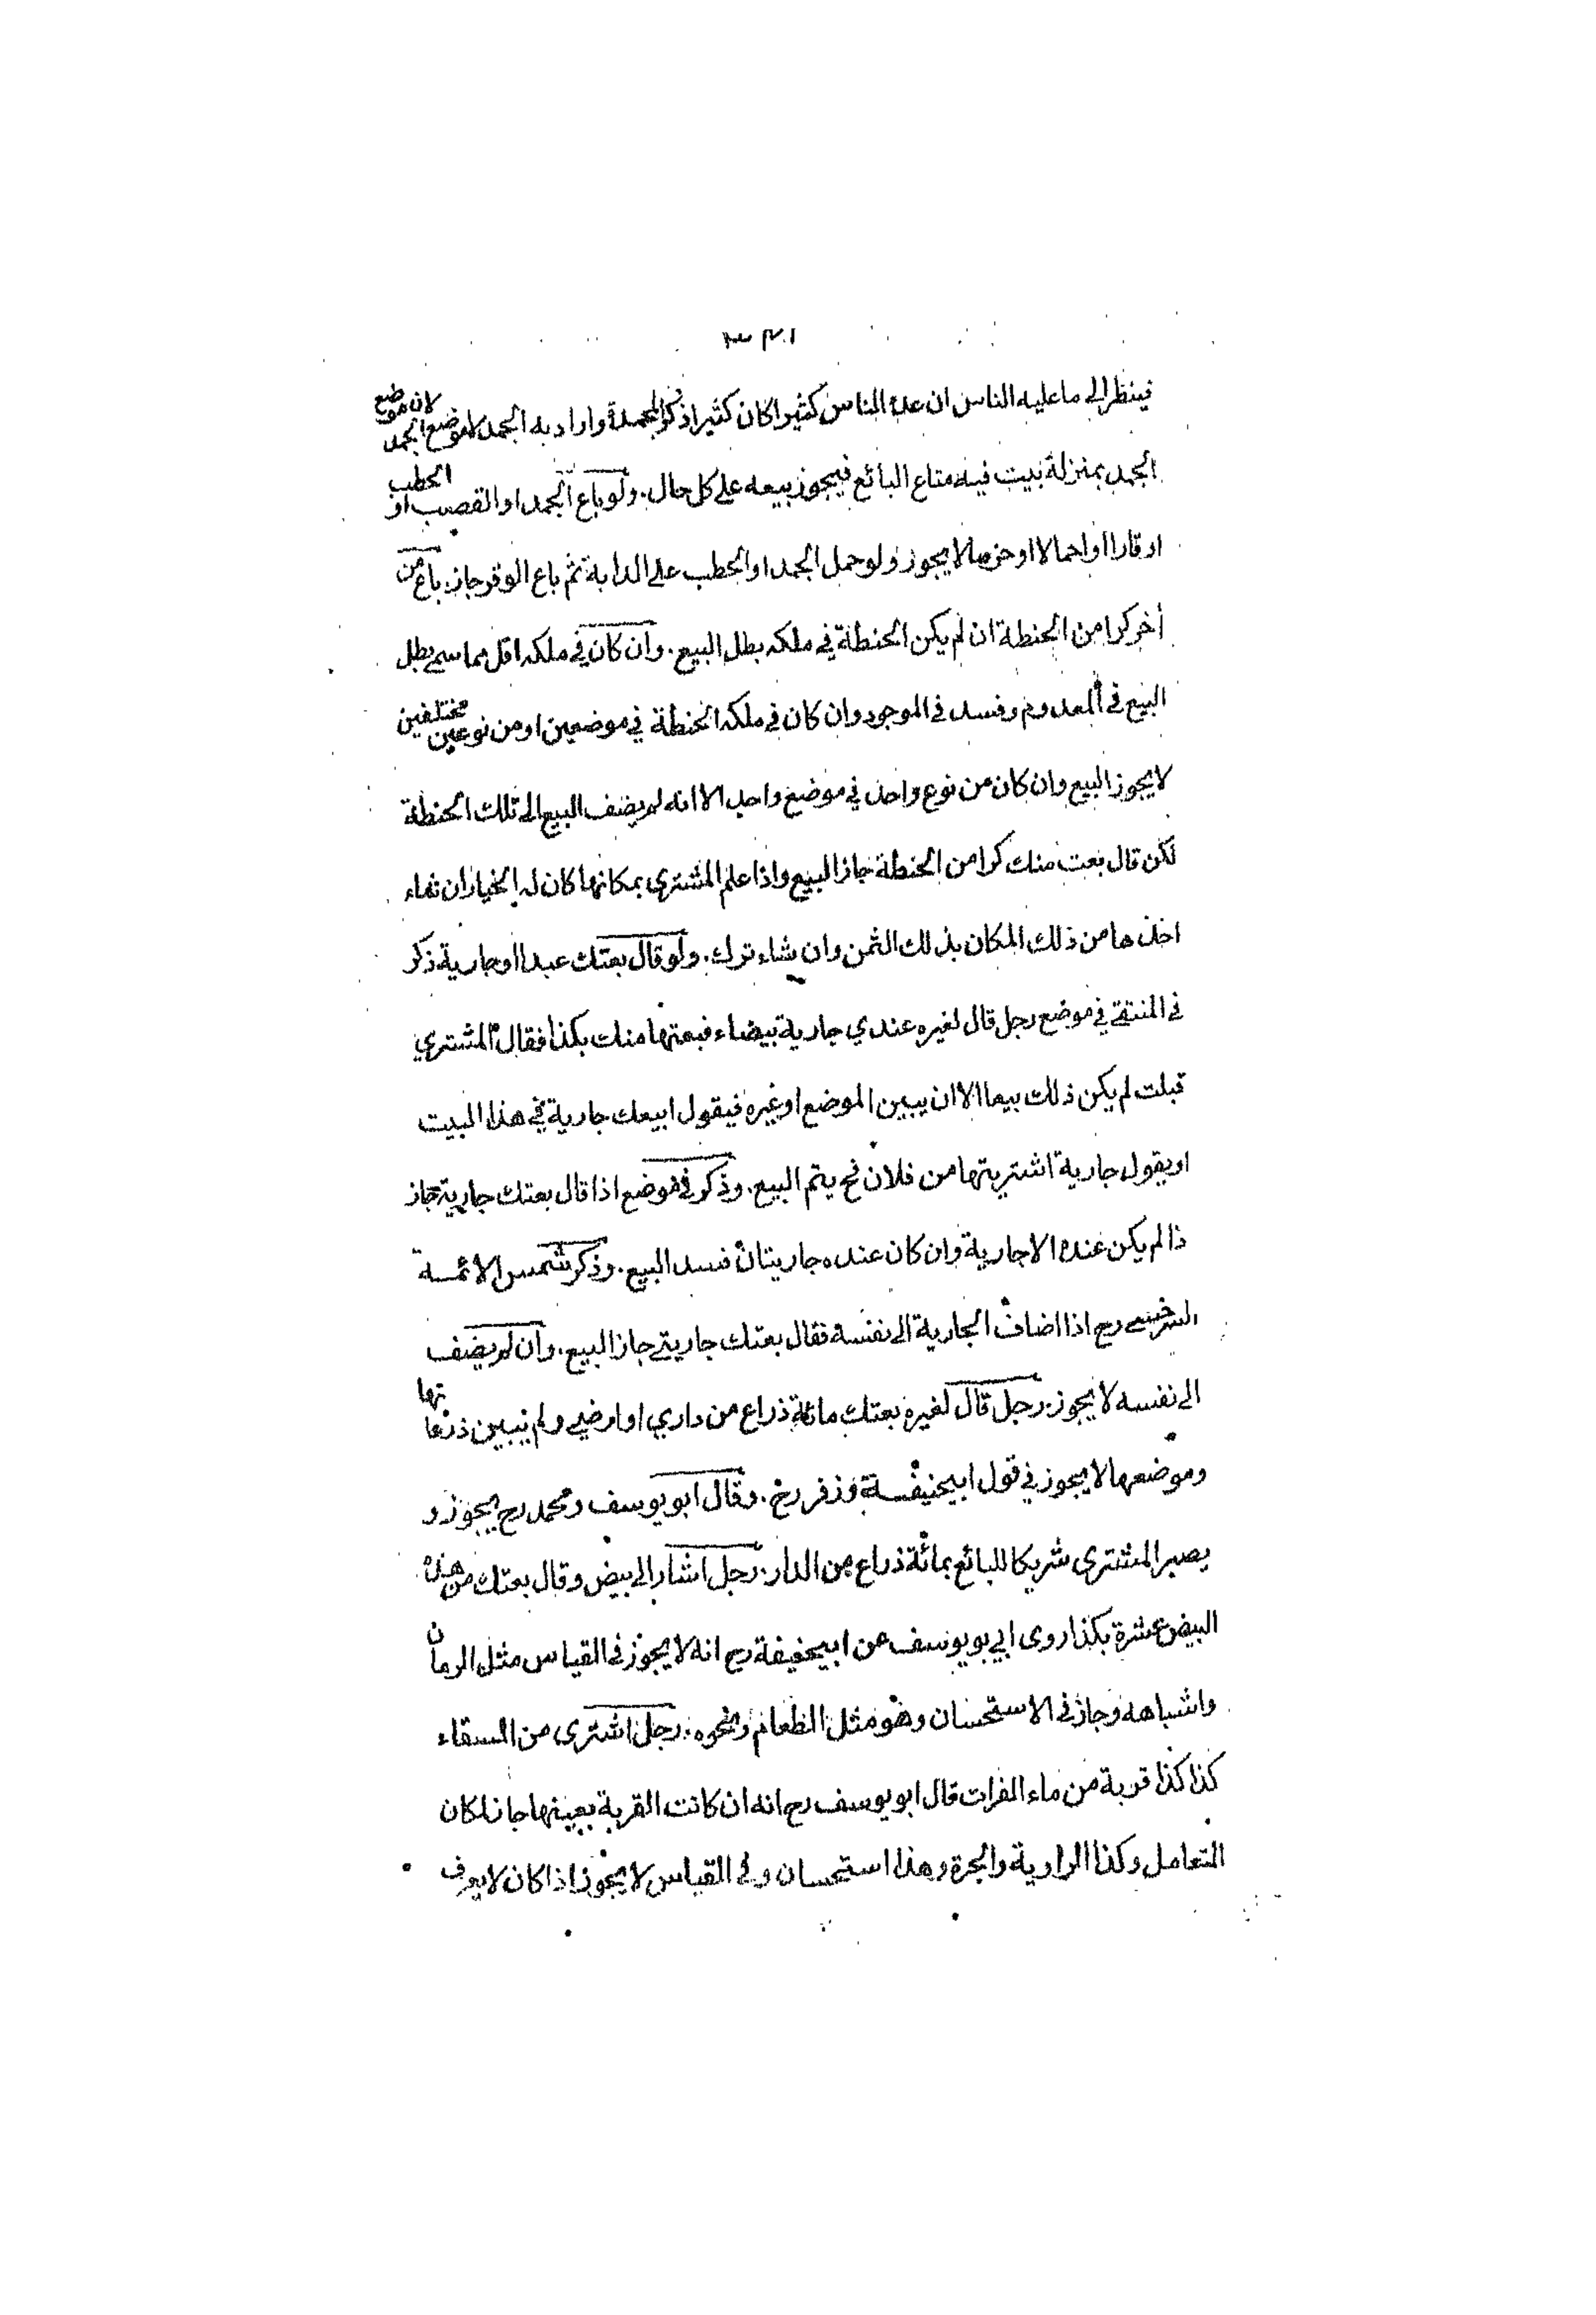 ٣٣١
فينظر الى ما عليه الناس ان عده الناس كثيرا كان كثيرا ذكر المجمدة واراد به الجمد لا موضع الجمد لان موضع
الجمد بمنزلة بيت فيه متاع البائع فيجوز بيعه على كل حال. ولو باع الجمد او القصب او الحطب
اوقارا او احمالا او حزما لا يجوز ولو حمل الجمد او الحطب على الدابة ثم باع الوقر جاز. باع من
أخر كرا من الحنطة ان لم يكن الحنطة في ملكه بطل البيع. وان كان في ملكه اقل مما سمى بطل
البيع في المعدوم وفسد في الموجود وان كان في ملكه الحنطة في موضعين او من نوعين مختلفين
لا يجوز البيع وان كان من نوع واحد في موضع واحد الا انه لم يضف البيع الى تلك الحنطة
لكن قال بعت منك كرا من الحنطة جاز البيع واذا علم المشتري بمكانها كان له الخيار ان شاء
اخذها من ذلك المكان بذلك الثمن وان شاء ترك. ولو قال بعتك عبدا او جارية ذكر
في المنتقى في موضع رجل قال لغيره عندي جارية بيضاء فبعتها منك بكذا فقال المشتري
قبلت لم يكن ذلك بيعا الا ان يبين الموضع او غيره فيقول ابيعك جارية في هذا البيت
او يقول جارية اشتريتها من فلان فح يتم البيع. وذكر في موضع اذا قال بعتك جارية جاز
ذا لم يكن عنده الا جارية وان كان عنده جاريتان فسد البيع. وذكر شمس الائمة
السرخسي رح اذا اضاف الجارية الى نفسه فقال بعتك جاريتي جاز البيع. وان لم يضف
الى نفسه لا يجوز. رجل قال لغيره بعتك مائة ذراع من داري او ارضي ولم يبين ذرعانها
وموضعها لا يجوز في قول ابيحنيفة وزفر رح. وقال ابو يوسف ومحمد رح يجوز و
يصير المشتري شريكا للبائع بمائة ذراع من الدار. رجل اشار الى بيض وقال بعتك من هذه
البيض عشرة بكذا روى ابي بو يوسف عن ابيحنيفة رح انه لا يجوز في القياس مثل الرمان
واشباهه وجاز في الاستحسان وهو مثل الطعام ونحوه. رجل اشترى من السقاء
كذا كذا قربة من ماء الفرات قال ابو يوسف رح انه ان كانت القربة بعينها جاز لمكان
التعامل وكذا الراوية والجرة وهذا استحسان وفي القياس لا يجوز اذا كان لا يعرف